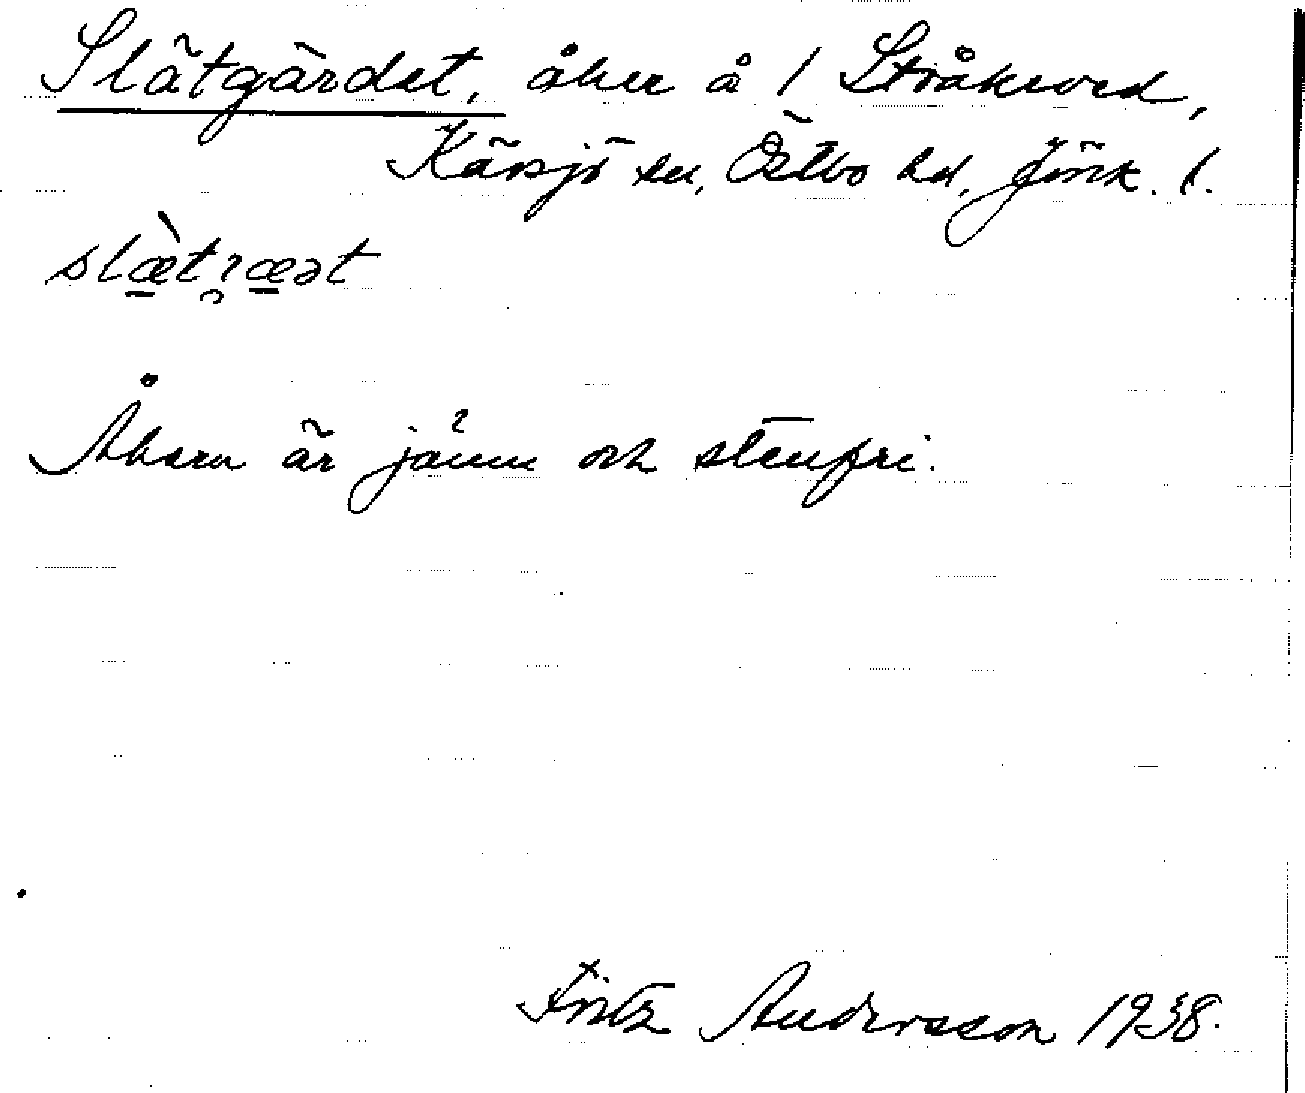 Slätgärdet, åker å 1 Stråkeved,
Kärsjö sn, Östbo hd, Jönk. l.
slæ̀tɂæət
Åkern är jämn och stenfri.
Fritz Andersson 1938.